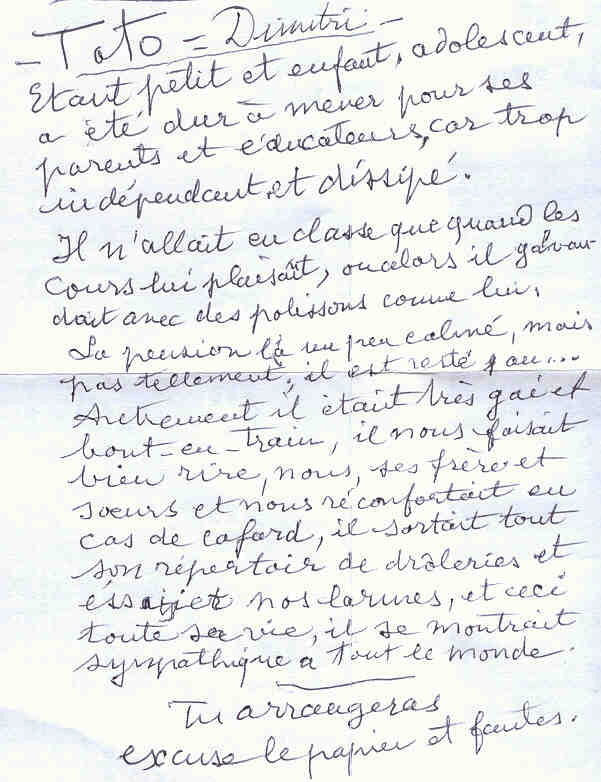 - Toto = Dimitri -
Etant petit et enfant, adolescent,
a été dur à mener pour ses
parents et éducateurs, car trop
indépendant, et dissipé.
Il n'allait en classe que quand les
cours lui plaisait, ou alors il galvau-
dait avec des polissons comme lui.
La pension l'a un peu calmé, mais
pas tellement, il est resté 1 an...
Autrement il était très gai et
bout-en-train, il nous faisait
bien rire, nous, ses frère et
sœurs et nous réconfortait en
cas de cafard, il sortait tout
son répertoir de drôleries et
nos larmes, et ceci
toute sa vie, il se montrait
sympathique à tout le monde.
Tu arrangeras
excuse le papier et fautes.